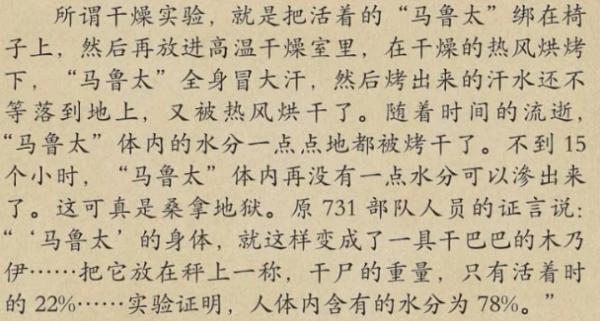 所谓干燥实验，就是把活着的“马鲁太”绑在椅
子上，然后再放进高温干燥室里，在干燥的热风烘烤
下，“马鲁太”全身冒大汗，然后烤出来的汗水还不
等落到地上，又被热风烘干了。随着时间的流逝，
“马鲁太”体内的水分一点点地都被烤干了。不到 15
个小时，“马鲁太”体内再没有一点水分可以渗出来
了。这可真是桑拿地狱。原 731 部队人员的证言说：
“‘马鲁太’的身体，就这样变成了一具干巴巴的木乃
伊……把它放在秤上一称，干尸的重量，只有活着时
的 22%……实验证明，人体内含有的水分为 78%。”